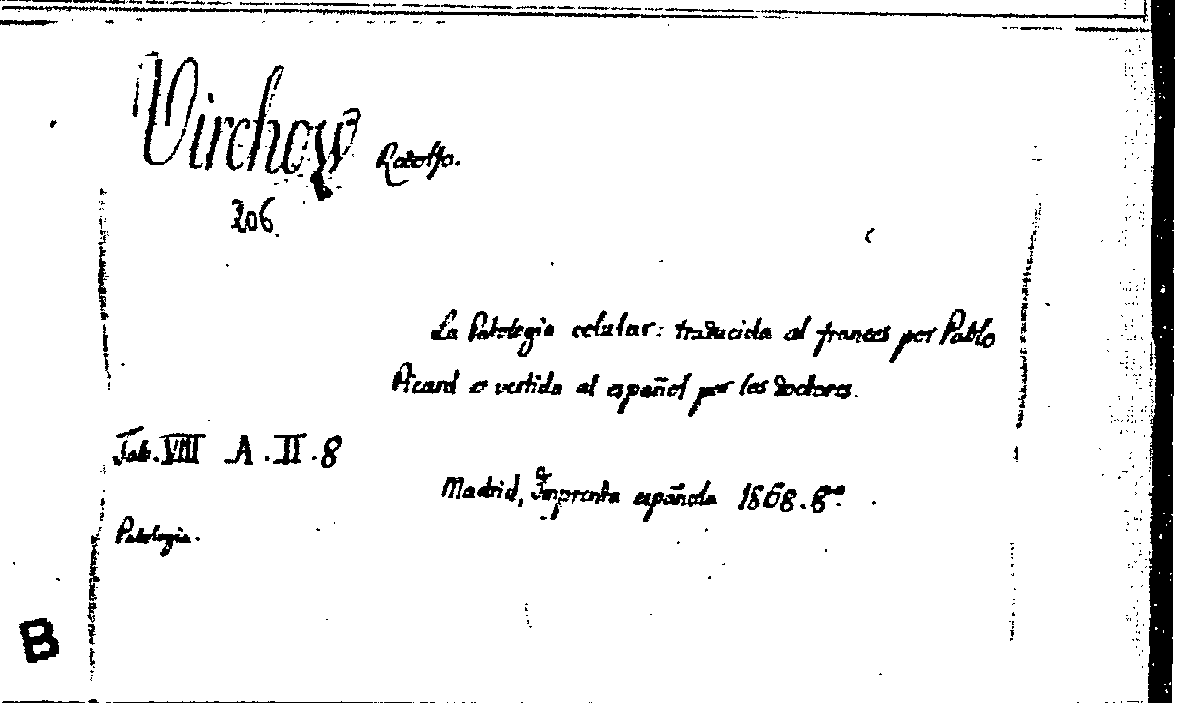 Virchow Rodolfo.
206.
La Patologia celular: traducida al frances por Pablo
Picard e vertida al español por los doctores.
Tab. VIII A. II. 8
Madrid, Imprenta española 1868. 8º
Patologia.
B